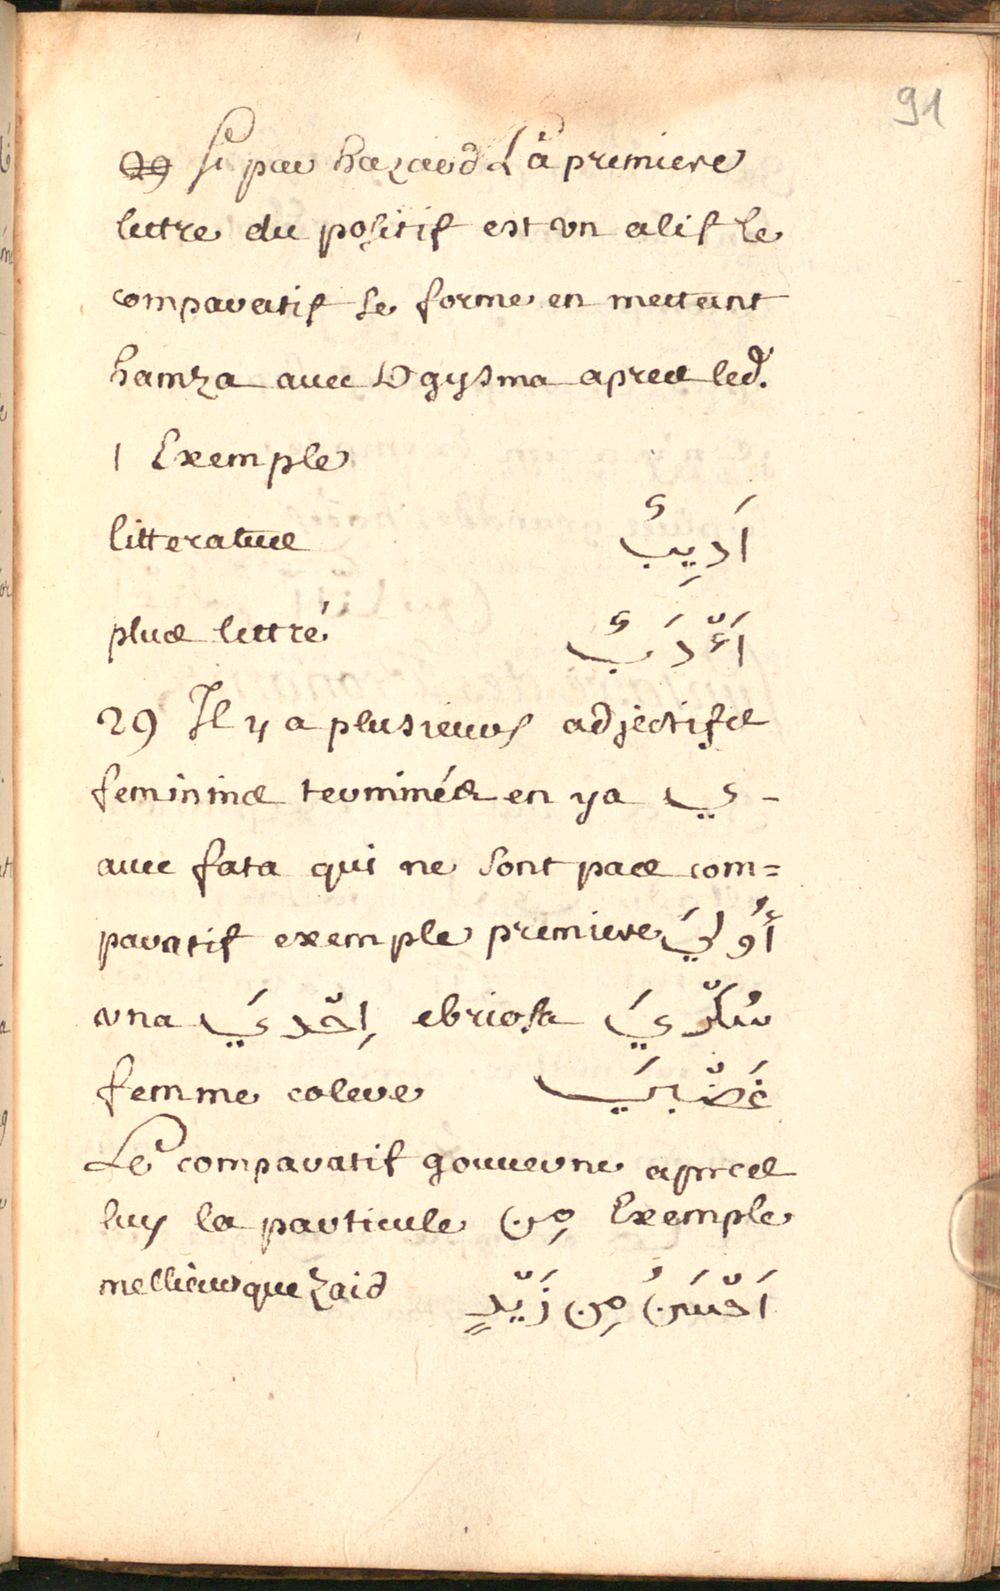 91
29 si par hazard La premiere
lettre du positif est vn alif le
comparatif se forme en mettant
hamza auec Dgysma apres led.
ا Exemple
litterature اَدِيبٌ
plus lettré اَءْدَبٌ
29 Il y a plusieurs adjectifs
feminins terminées en ya ي -
auec fata qui ne sont pas com=
paratif exemple premiere أُوليَ
vna اِحْديَ ebriosa سُكْريَ
femme colere غَضْبيَ
Le comparatif gouuerne apres
luy la particule مِن Exemple
mellieur que Zaid اَحْسَنُ مِن زَيْدٍ